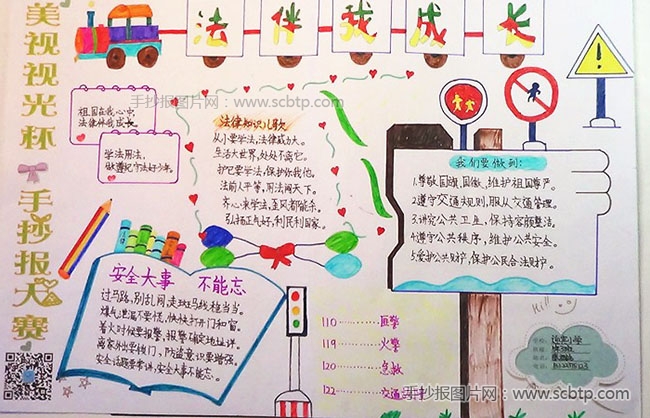 美视视光杯手抄报大赛
法伴我成长
手抄报图片网：www.scbtp.com
祖国在我心中,
法律伴我成长
学法用法,
做遵纪守法好少年。
法律知识儿歌
从小要学法,法律威力大。
生活大世界,处处不离它。
护它要学法,保护你我他。
法前人平等,用法闯天下。
齐心来学法,至凤都能杀。
弘扬正气好,利民利国家。
我们要做到:
1.尊敬国旗,国徽,维护祖国尊严。
2.遵守交通规则,服从交通管理。
3.讲究公共卫生,保持容颜整洁。
4.遵守公共秩序,维护公共安全。
5.爱护公共财护,保护公民合法财护。
安全大事 不能忘
过马路,别乱闯,走斑马线恰当当。
煤气泄漏不要慌,快快打开门和窗。
着火时候要报警,报警确定地址详。
离家外出要锁门,防盗意识要增强。
安全话题要常讲,安全大事不能忘。
110 匪警
119 火警
120 急救
122 交通
Hi!!
学校:
班级:
姓名:
电话:
手抄报图片网：www.scbtp.com